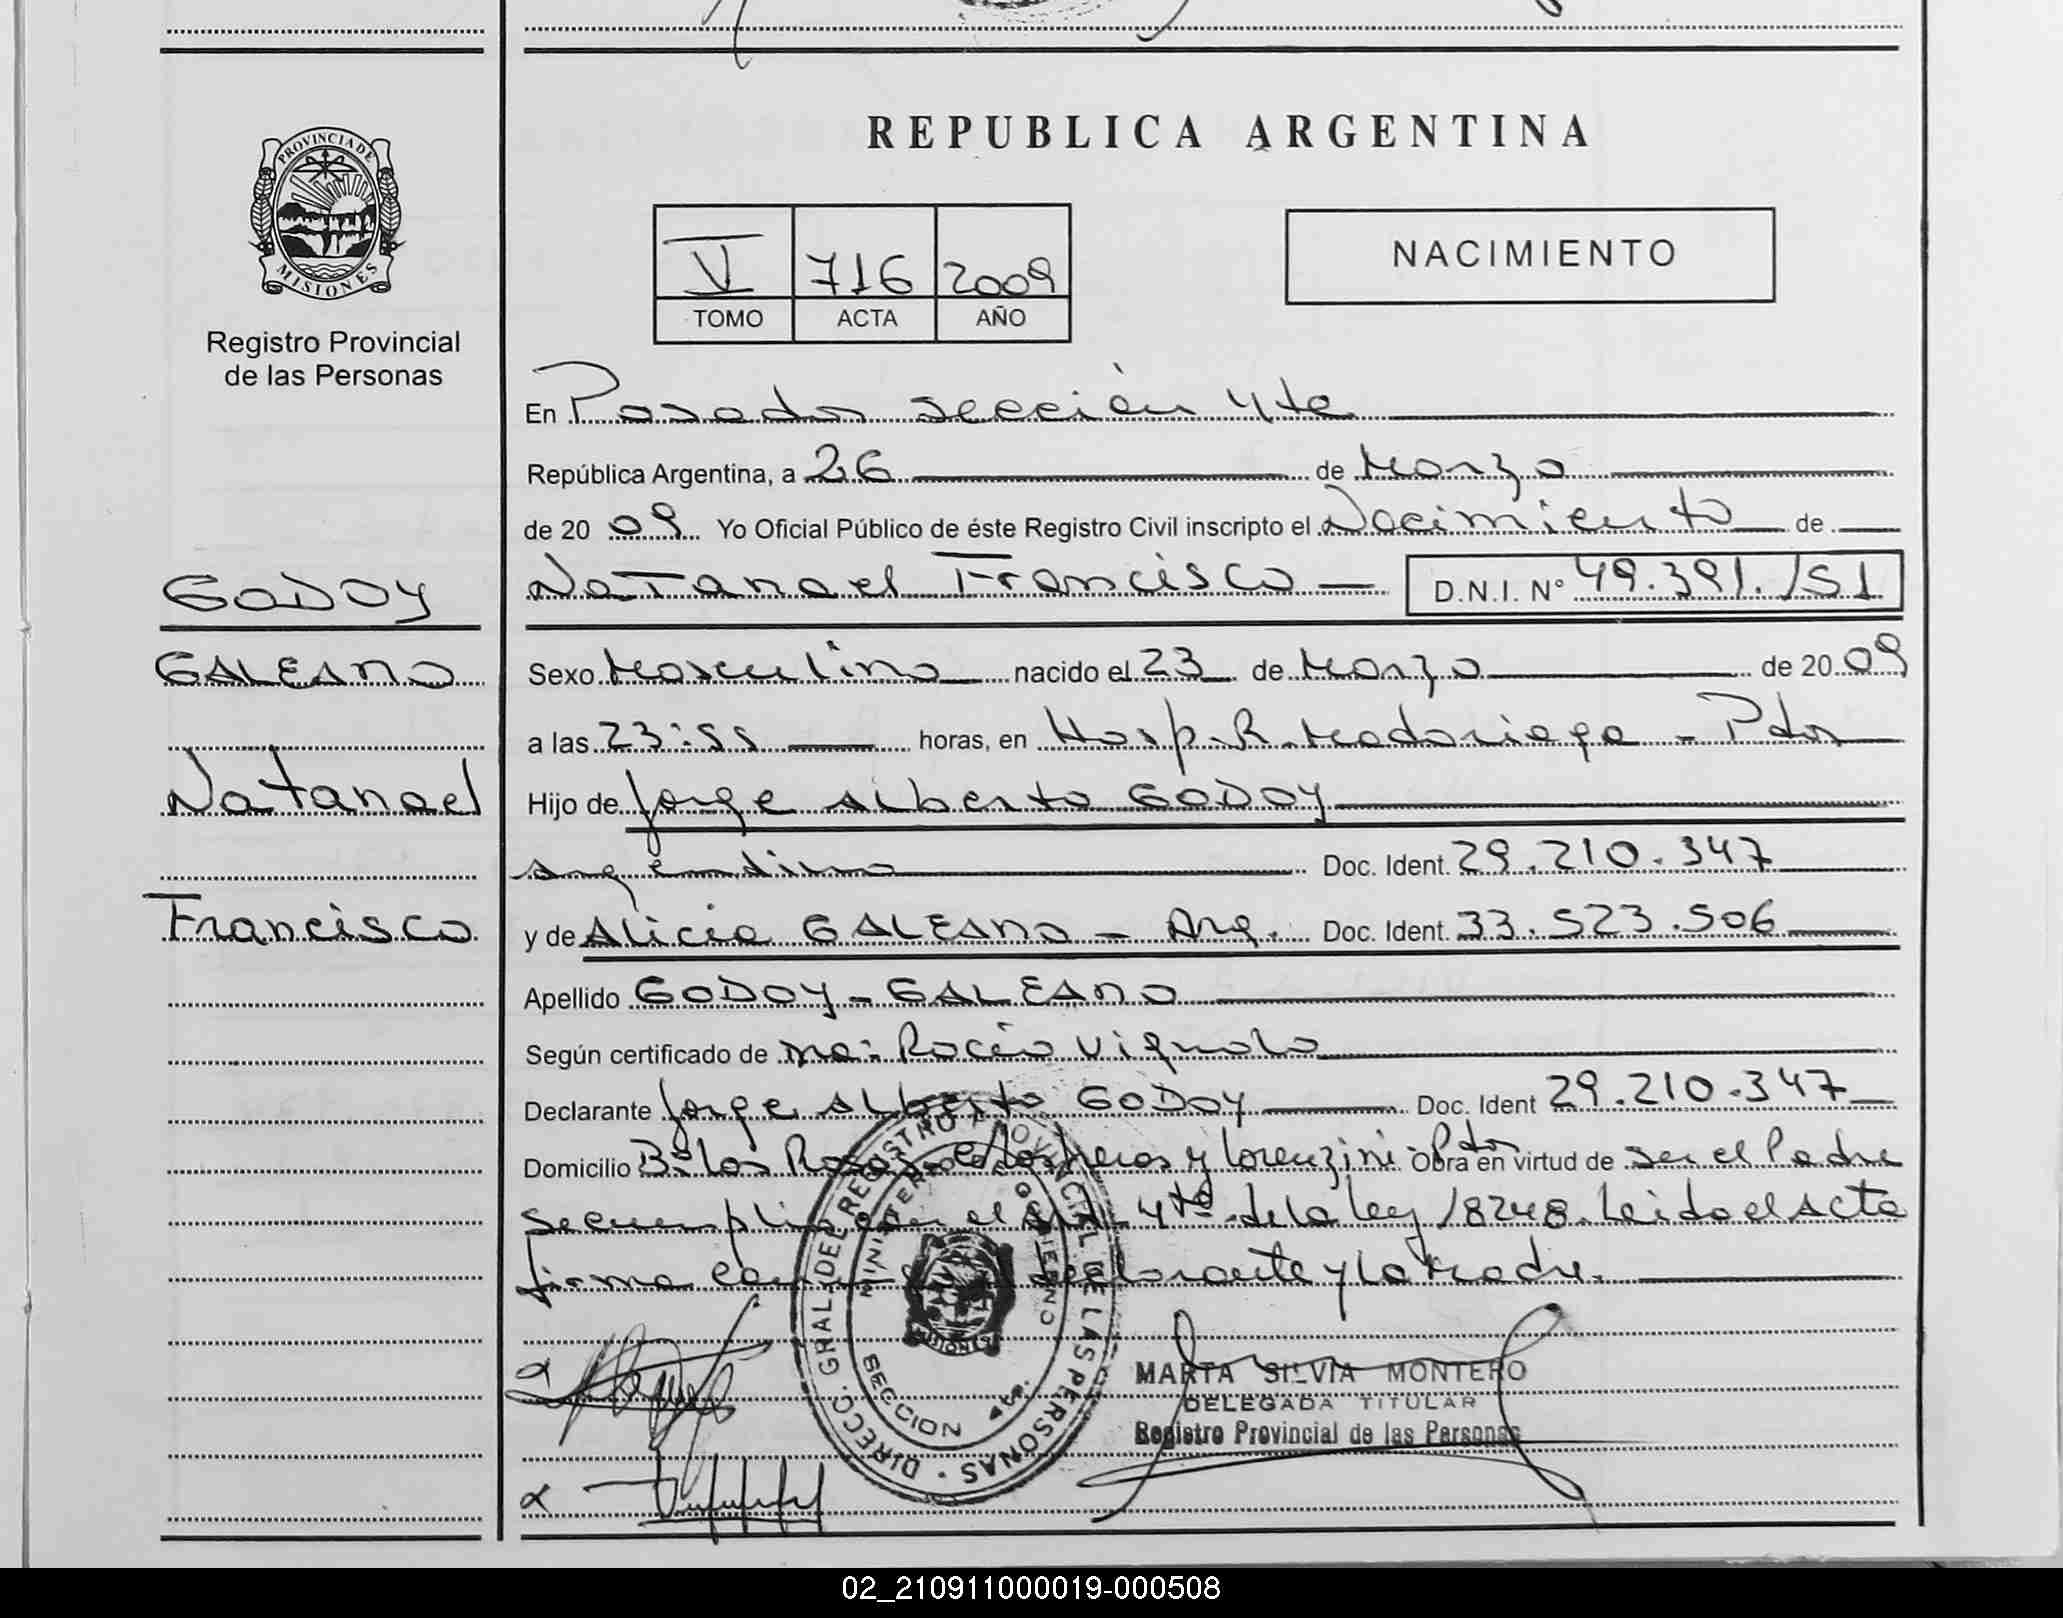 REPUBLICA ARGENTINA
PROVINCIA DE
MISIONES
Registro Provincial
de las Personas
V 716 2009
TOMO ACTA AÑO
NACIMIENTO
En Posadas sección 4ta
República Argentina, a 26 de Marzo
de 2009 Yo Oficial Público de éste Registro Civil inscripto el Nacimiento de
GODOY
Natanael Francisco D.N.I. Nº 49.391.151
GALEANO
Sexo Masculino nacido el 23 de Marzo de 2009
a las 23:55 horas, en Hosp. R. Madariaga - Pdas
Natanael
Hijo de Jorge Alberto GODOY
argentino Doc. Ident. 29.210.347
Francisco
y de Alicia GALEANO - Arg. Doc. Ident. 33.523.506
Apellido GODOY - GALEANO
Según certificado de Rocío Vignolo
Declarante Jorge Alberto GODOY Doc. Ident 29.210.347
Domicilio Bº Las Rosas y Lorenzini - Pdas Obra en virtud de ser el Padre
se cumplió con el Art. 4to de la ley 18248. Leido el Acta
firma Declarante y la Madre.
DIRECC. GRAL. DEL REGISTRO PROVINCIAL DE LAS PERSONAS
MINISTERIO GOBIERNO
SECCION 4ta.
MISIONES
MARTA SILVIA MONTERO
DELEGADA TITULAR
Registro Provincial de las Personas
02_210911000019-000508